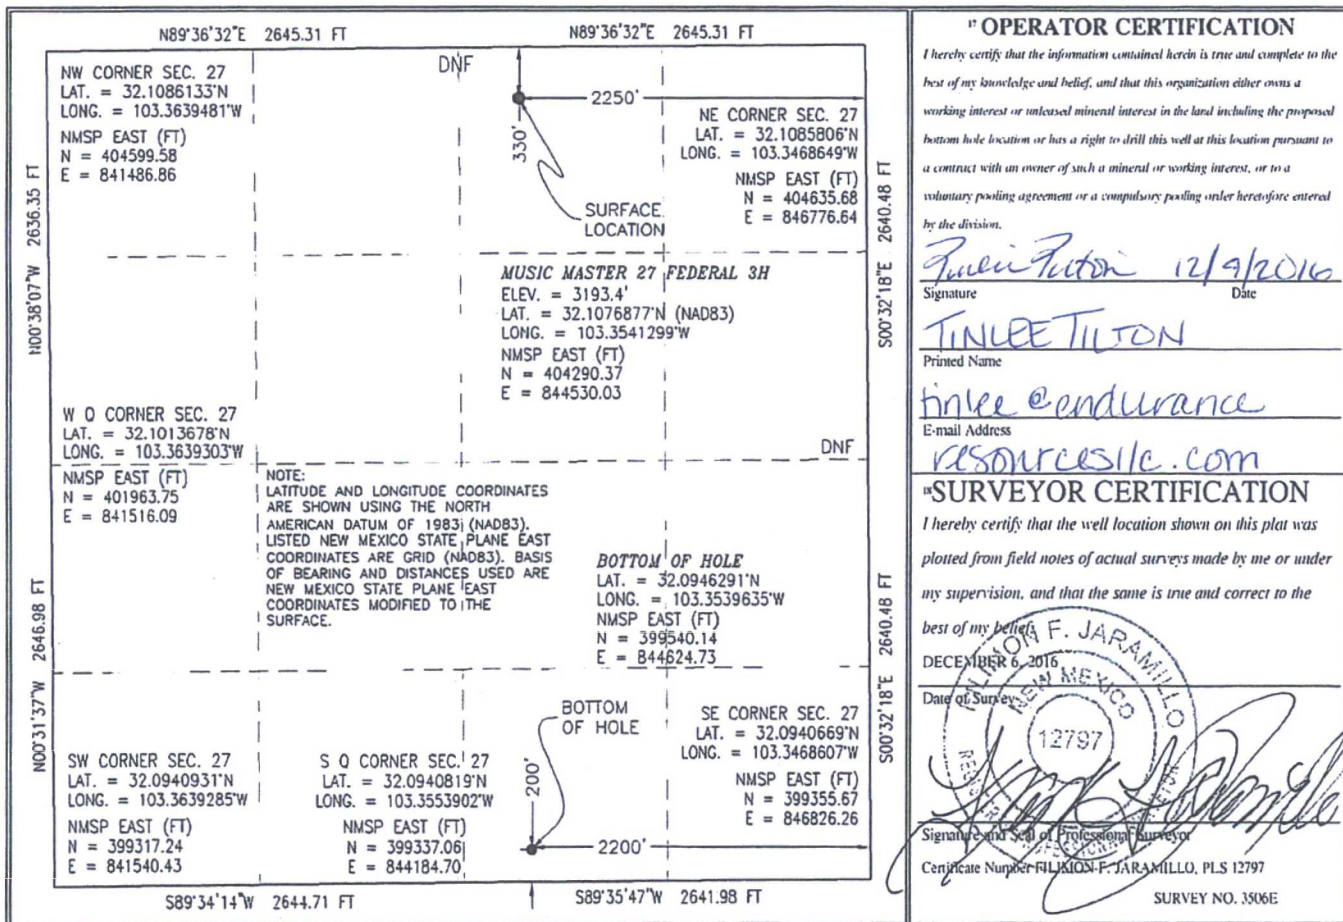 N89°36'32"E 2645.31 FT
N89°36'32"E 2645.31 FT
NW CORNER SEC. 27
LAT. = 32.1086133°N
LONG. = 103.3639481°W
NMSP EAST (FT)
N = 404599.58
E = 841486.86
DNF
2250'
330'
NE CORNER SEC. 27
LAT. = 32.1085806°N
LONG. = 103.3468649°W
NMSP EAST (FT)
N = 404635.68
E = 846776.64
SURFACE
LOCATION
N00°38'07"W 2636.35 FT
S00°32'18"E 2640.48 FT
MUSIC MASTER 27 FEDERAL 3H
ELEV. = 3193.4'
LAT. = 32.1076877°N (NAD83)
LONG. = 103.3541299°W
NMSP EAST (FT)
N = 404290.37
E = 844530.03
W Q CORNER SEC. 27
LAT. = 32.1013678°N
LONG. = 103.3639303°W
NMSP EAST (FT)
N = 401963.75
E = 841516.09
DNF
NOTE:
LATITUDE AND LONGITUDE COORDINATES
ARE SHOWN USING THE NORTH
AMERICAN DATUM OF 1983 (NAD83).
LISTED NEW MEXICO STATE PLANE EAST
COORDINATES ARE GRID (NAD83). BASIS
OF BEARING AND DISTANCES USED ARE
NEW MEXICO STATE PLANE EAST
COORDINATES MODIFIED TO THE
SURFACE.
BOTTOM OF HOLE
LAT. = 32.0946291°N
LONG. = 103.3539635°W
NMSP EAST (FT)
N = 399540.14
E = 844624.73
N00°31'37"W 2646.98 FT
S00°32'18"E 2640.48 FT
SW CORNER SEC. 27
LAT. = 32.0940931°N
LONG. = 103.3639285°W
NMSP EAST (FT)
N = 399317.24
E = 841540.43
S Q CORNER SEC. 27
LAT. = 32.0940819°N
LONG. = 103.3553902°W
NMSP EAST (FT)
N = 399337.06
E = 844184.70
BOTTOM
OF HOLE
200'
2200'
SE CORNER SEC. 27
LAT. = 32.0940669°N
LONG. = 103.3468607°W
NMSP EAST (FT)
N = 399355.67
E = 846826.26
S89°34'14"W 2644.71 FT
S89°35'47"W 2641.98 FT
17 OPERATOR CERTIFICATION
I hereby certify that the information contained herein is true and complete to the
best of my knowledge and belief, and that this organization either owns a
working interest or unleased mineral interest in the land including the proposed
bottom hole location or has a right to drill this well at this location pursuant to
a contract with an owner of such a mineral or working interest, or to a
voluntary pooling agreement or a compulsory pooling order heretofore entered
by the division.
12/9/2016
Signature Date
TINLEE TILTON
Printed Name
tinlee@endurance
E-mail Address
resourcesllc.com
18 SURVEYOR CERTIFICATION
I hereby certify that the well location shown on this plat was
plotted from field notes of actual surveys made by me or under
my supervision, and that the same is true and correct to the
best of my belief.
DECEMBER 6, 2016
Date of Survey
FILIMON F. JARAMILLO
NEW MEXICO
12797
Signature and Seal of Professional Surveyor
Certificate Number FILIMON F. JARAMILLO, PLS 12797
SURVEY NO. 3506E